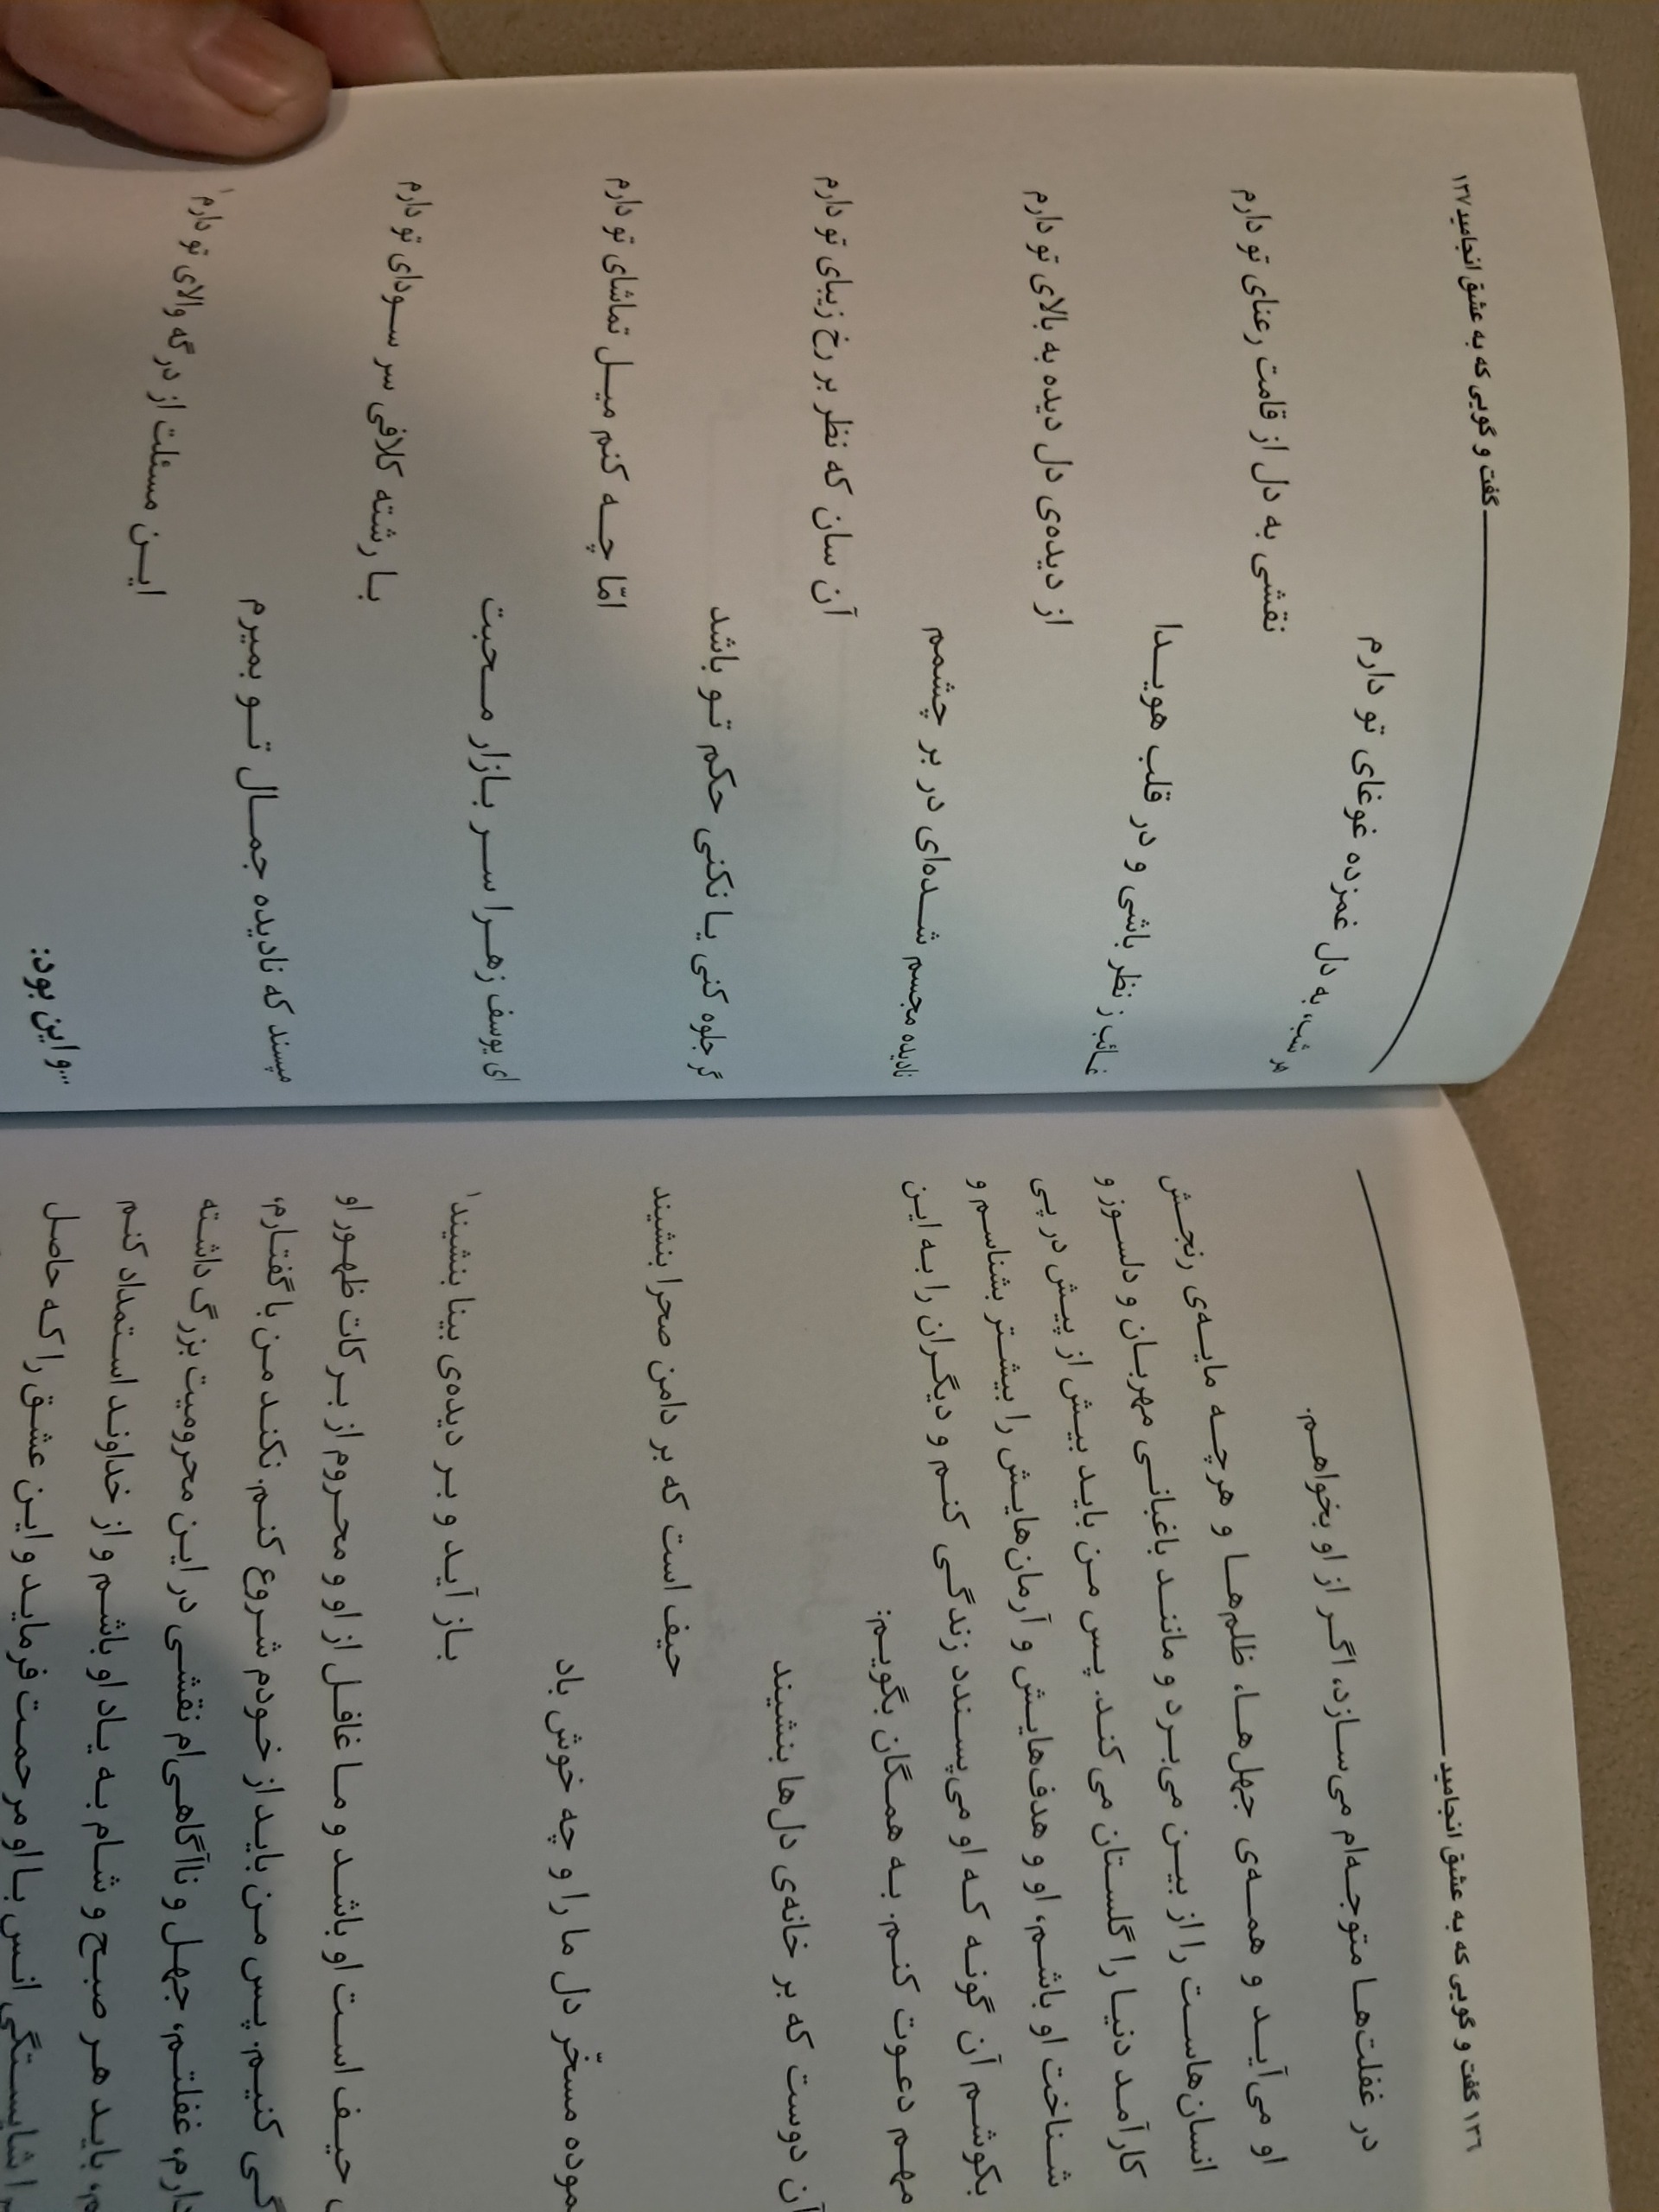 ۱۳۶ گفت و گویی که به عشق انجامید
در غفلت‌ها متوجه‌ام می‌سازد، اگر از او بخواهم.
او می‌آید و همه‌ی جهل‌ها، ظلم‌ها و هرچه مایه‌ی رنجش
انسان‌هاست را از بین می‌برد و مانند باغبانی مهربان و دلسوز و
کارآمد دنیا را گلستان می‌کند. پس من باید بیش از پیش در پی
شناخت او باشم، او و هدف‌هایش و آرمان‌هایش را بیشتر بشناسم و
بکوشم آن گونه که او می‌پسندد زندگی کنم و دیگران را به این
مهم دعوت کنم. به همگان بگویم:
آن دوست که بر خانه‌ی دل‌ها بنشیند
حیف است که بر دامن صحرا بنشیند
مسخّر دل ما را و چه خوش باد
باز آید و بر دیده‌ی بینا بنشیند۱
حیف است او باشد و ما غافل از او و محروم از برکات ظهور او
کنیم. پس من باید از خودم شروع کنم. نکند من با گفتارم،
غفلتم، جهل و ناآگاهی‌ام نقشی در این محرومیت بزرگ داشته
باید هر صبح و شام به یاد او باشم و از خداوند استمداد کنم
شایستگی انس با او مرحمت فرماید و این عشق را که حاصل
گفت و گویی که به عشق انجامید ۱۳۷
هر شب، به دل غمزده غوغای تو دارم
نقشی به دل از قامت رعنای تو دارم
غائب ز نظر باشی و در قلب هویدا
از دیده‌ی دل دیده به بالای تو دارم
نادیده مجسم شده‌ای در بر چشمم
آن سان که نظر بر رخ زیبای تو دارم
گر جلوه کنی یا نکنی حکم تو باشد
امّا چه کنم میل تماشای تو دارم
ای یوسف زهرا سر بازار محبت
با رشته کلافی سر سودای تو دارم
مپسند که نادیده جمال تو بمیرم
این مسئلت از درگه والای تو دارم۱
...و این بود: